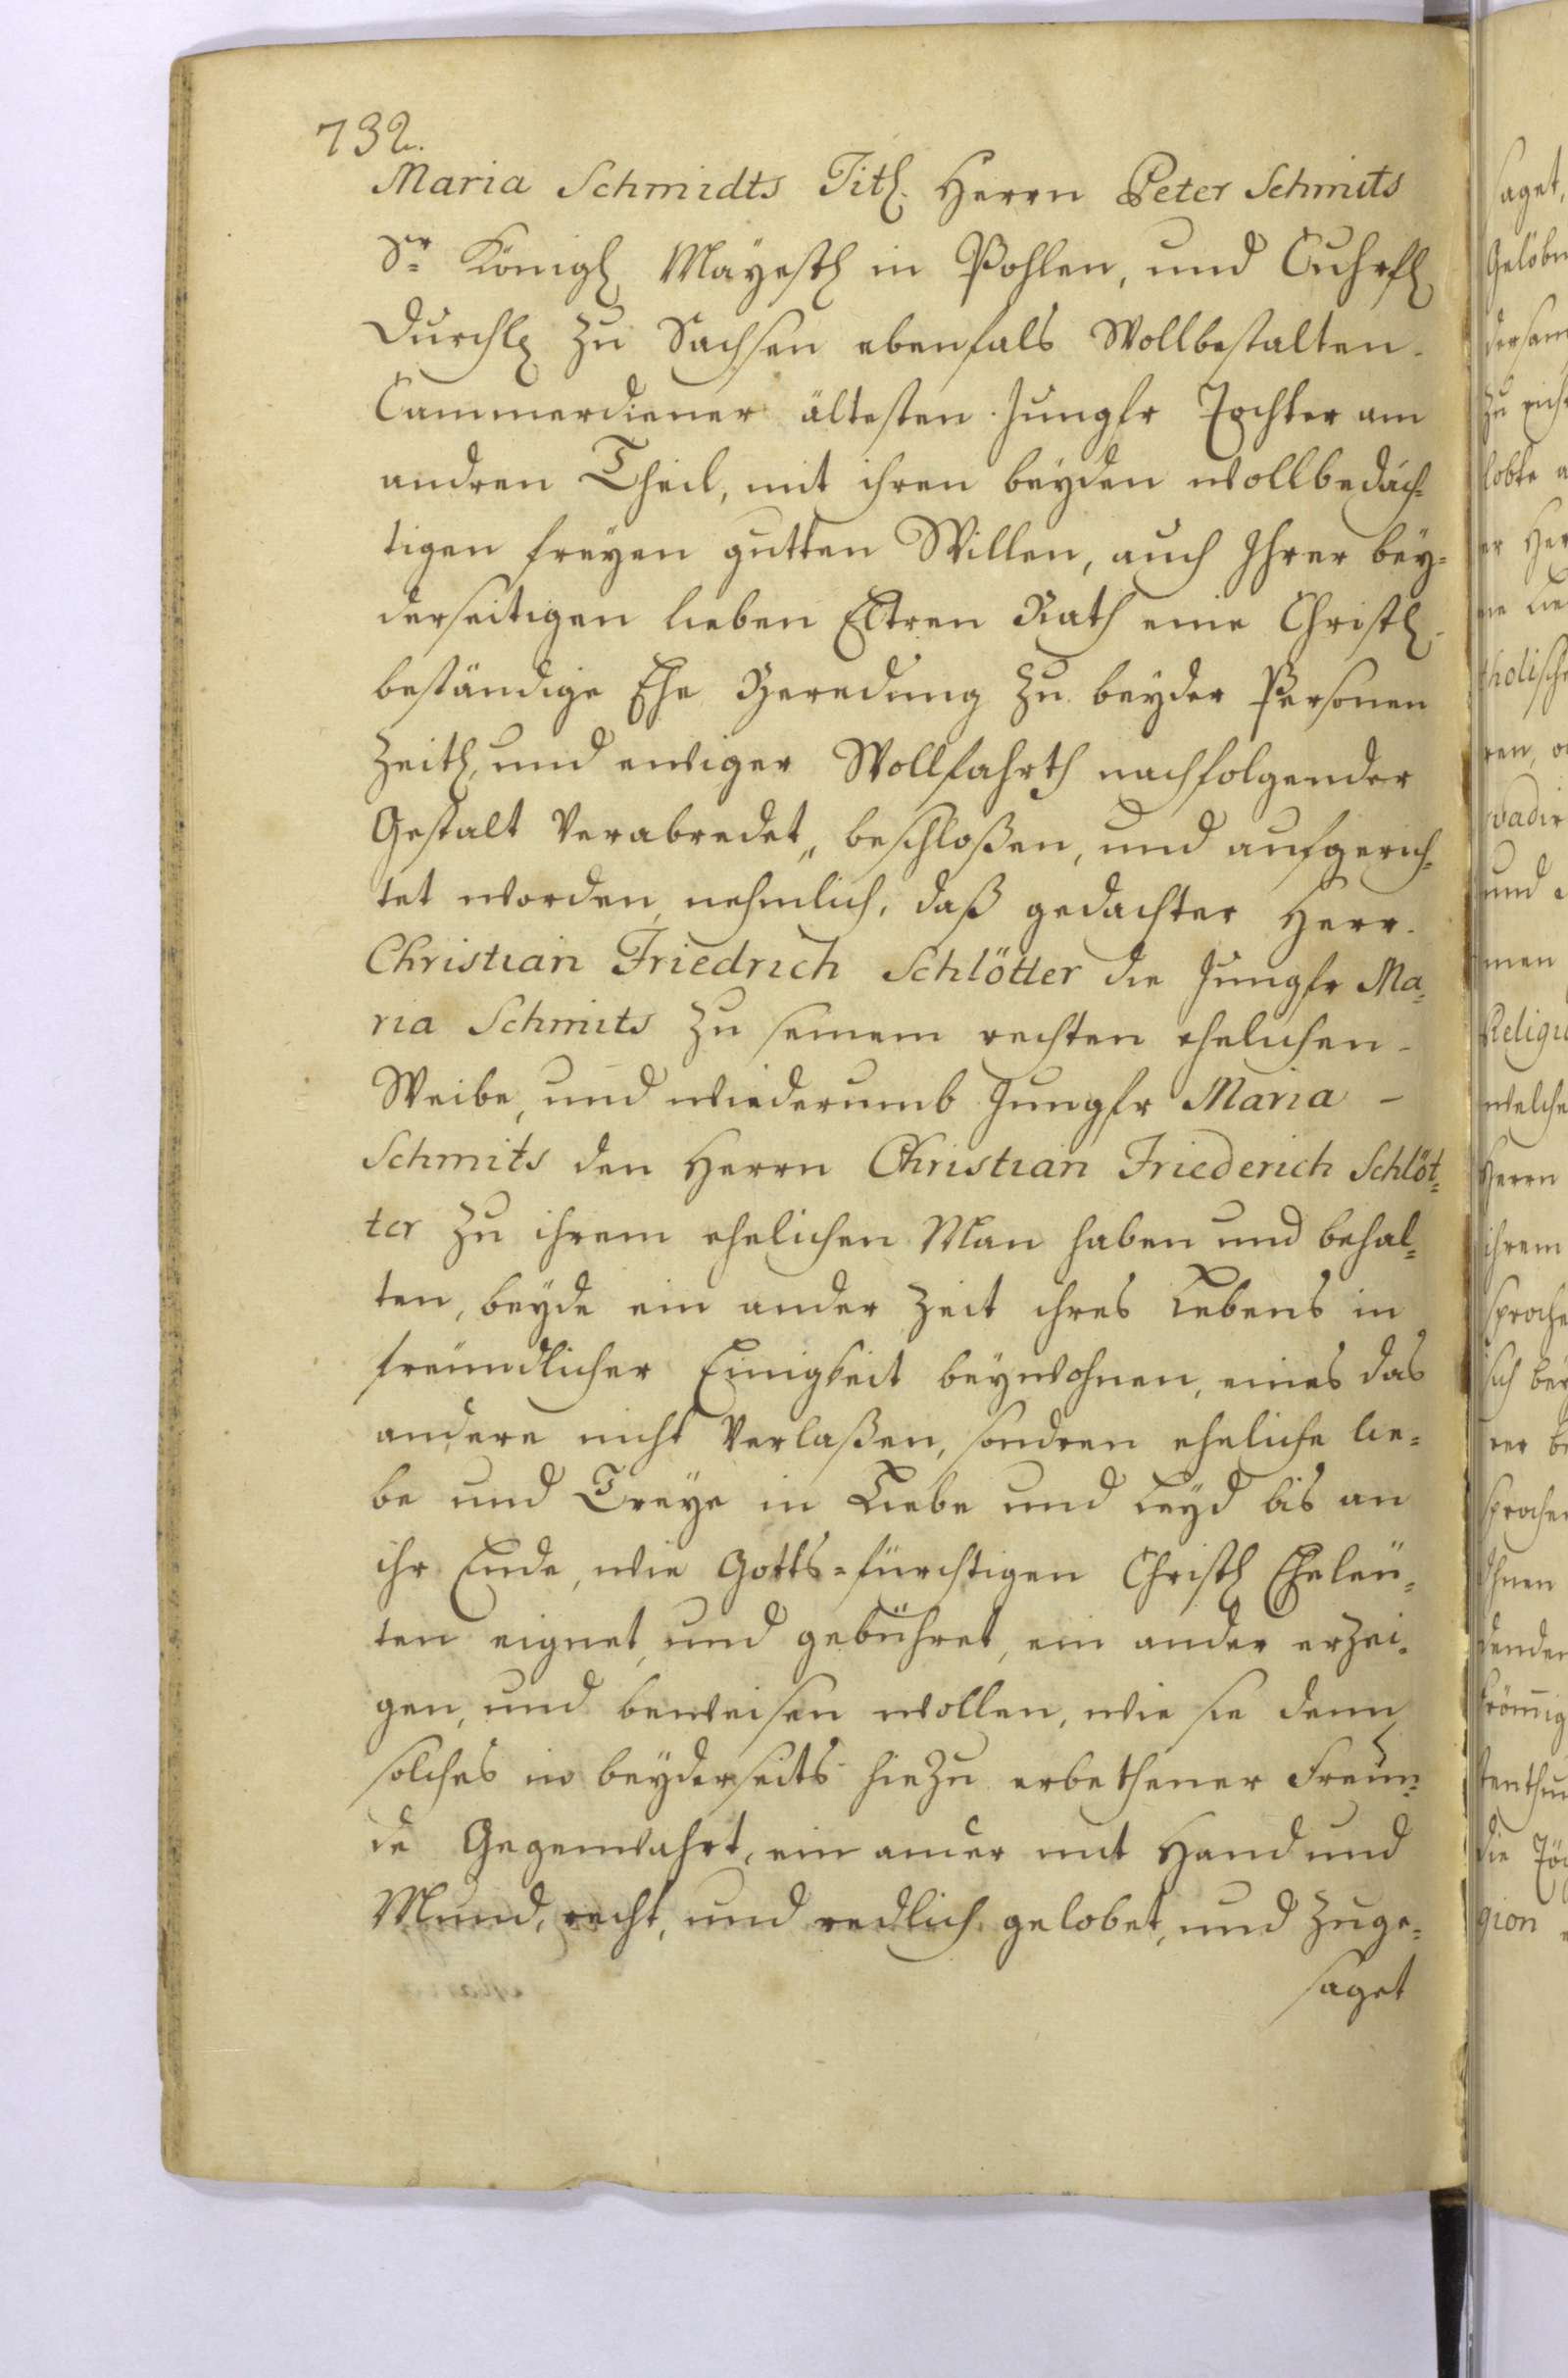 732.
Maria Schmidts Titl. Herrn Peter Schmits
Sr Königl Mayestl in Pohlen, und Cuhrfl
Durchl zu Sachsen ebenfals Wollbestalten
Cammerdiener ältesten Jungfr Tochter am
andren Theil, mit ihren beyden wollbedäch=
tigen freyen gutten Willen, auch Ihrer bey=
derseitigen lieben Eltren Rath eine Christl
beständige Ehe Beredung zu beyder Personen
Zeitl, und ewiger Wollfahrth nachfolgender
Gestalt verabredet, beschloßen, und aufgerich=
tet worden, nehmlich, daß gedachter Herr
Christian Friedrich Schlötter die Jungfr Ma=
ria Schmits zu seinem rechten ehelichen
Weibe, und wiederumb Jungfr Maria -
Schmits den Herrn Christian Friederich Schlöt=
ter zu ihrem ehelichen Man haben und behal=
ten, beyde ein ander Zeit ihres Lebens in
freundlicher Einigkeit beywohnen, eines das
andere nicht verlaßen, sondren eheliche lie=
be und Treye in Liebe und Leyd bis an
ihr Ende, wie Gotts=fürchtigen Christl Eheleü=
ten eignet, und gebühret, ein ander erzei=
gen, und beweisen wollen, wie sie denn
solches in beyderseits hiezu erbethener Freün=
de Gegenwahrt, ein ander mit Hand und
Mund, recht, und redlich gelobet, und zuge=
saget